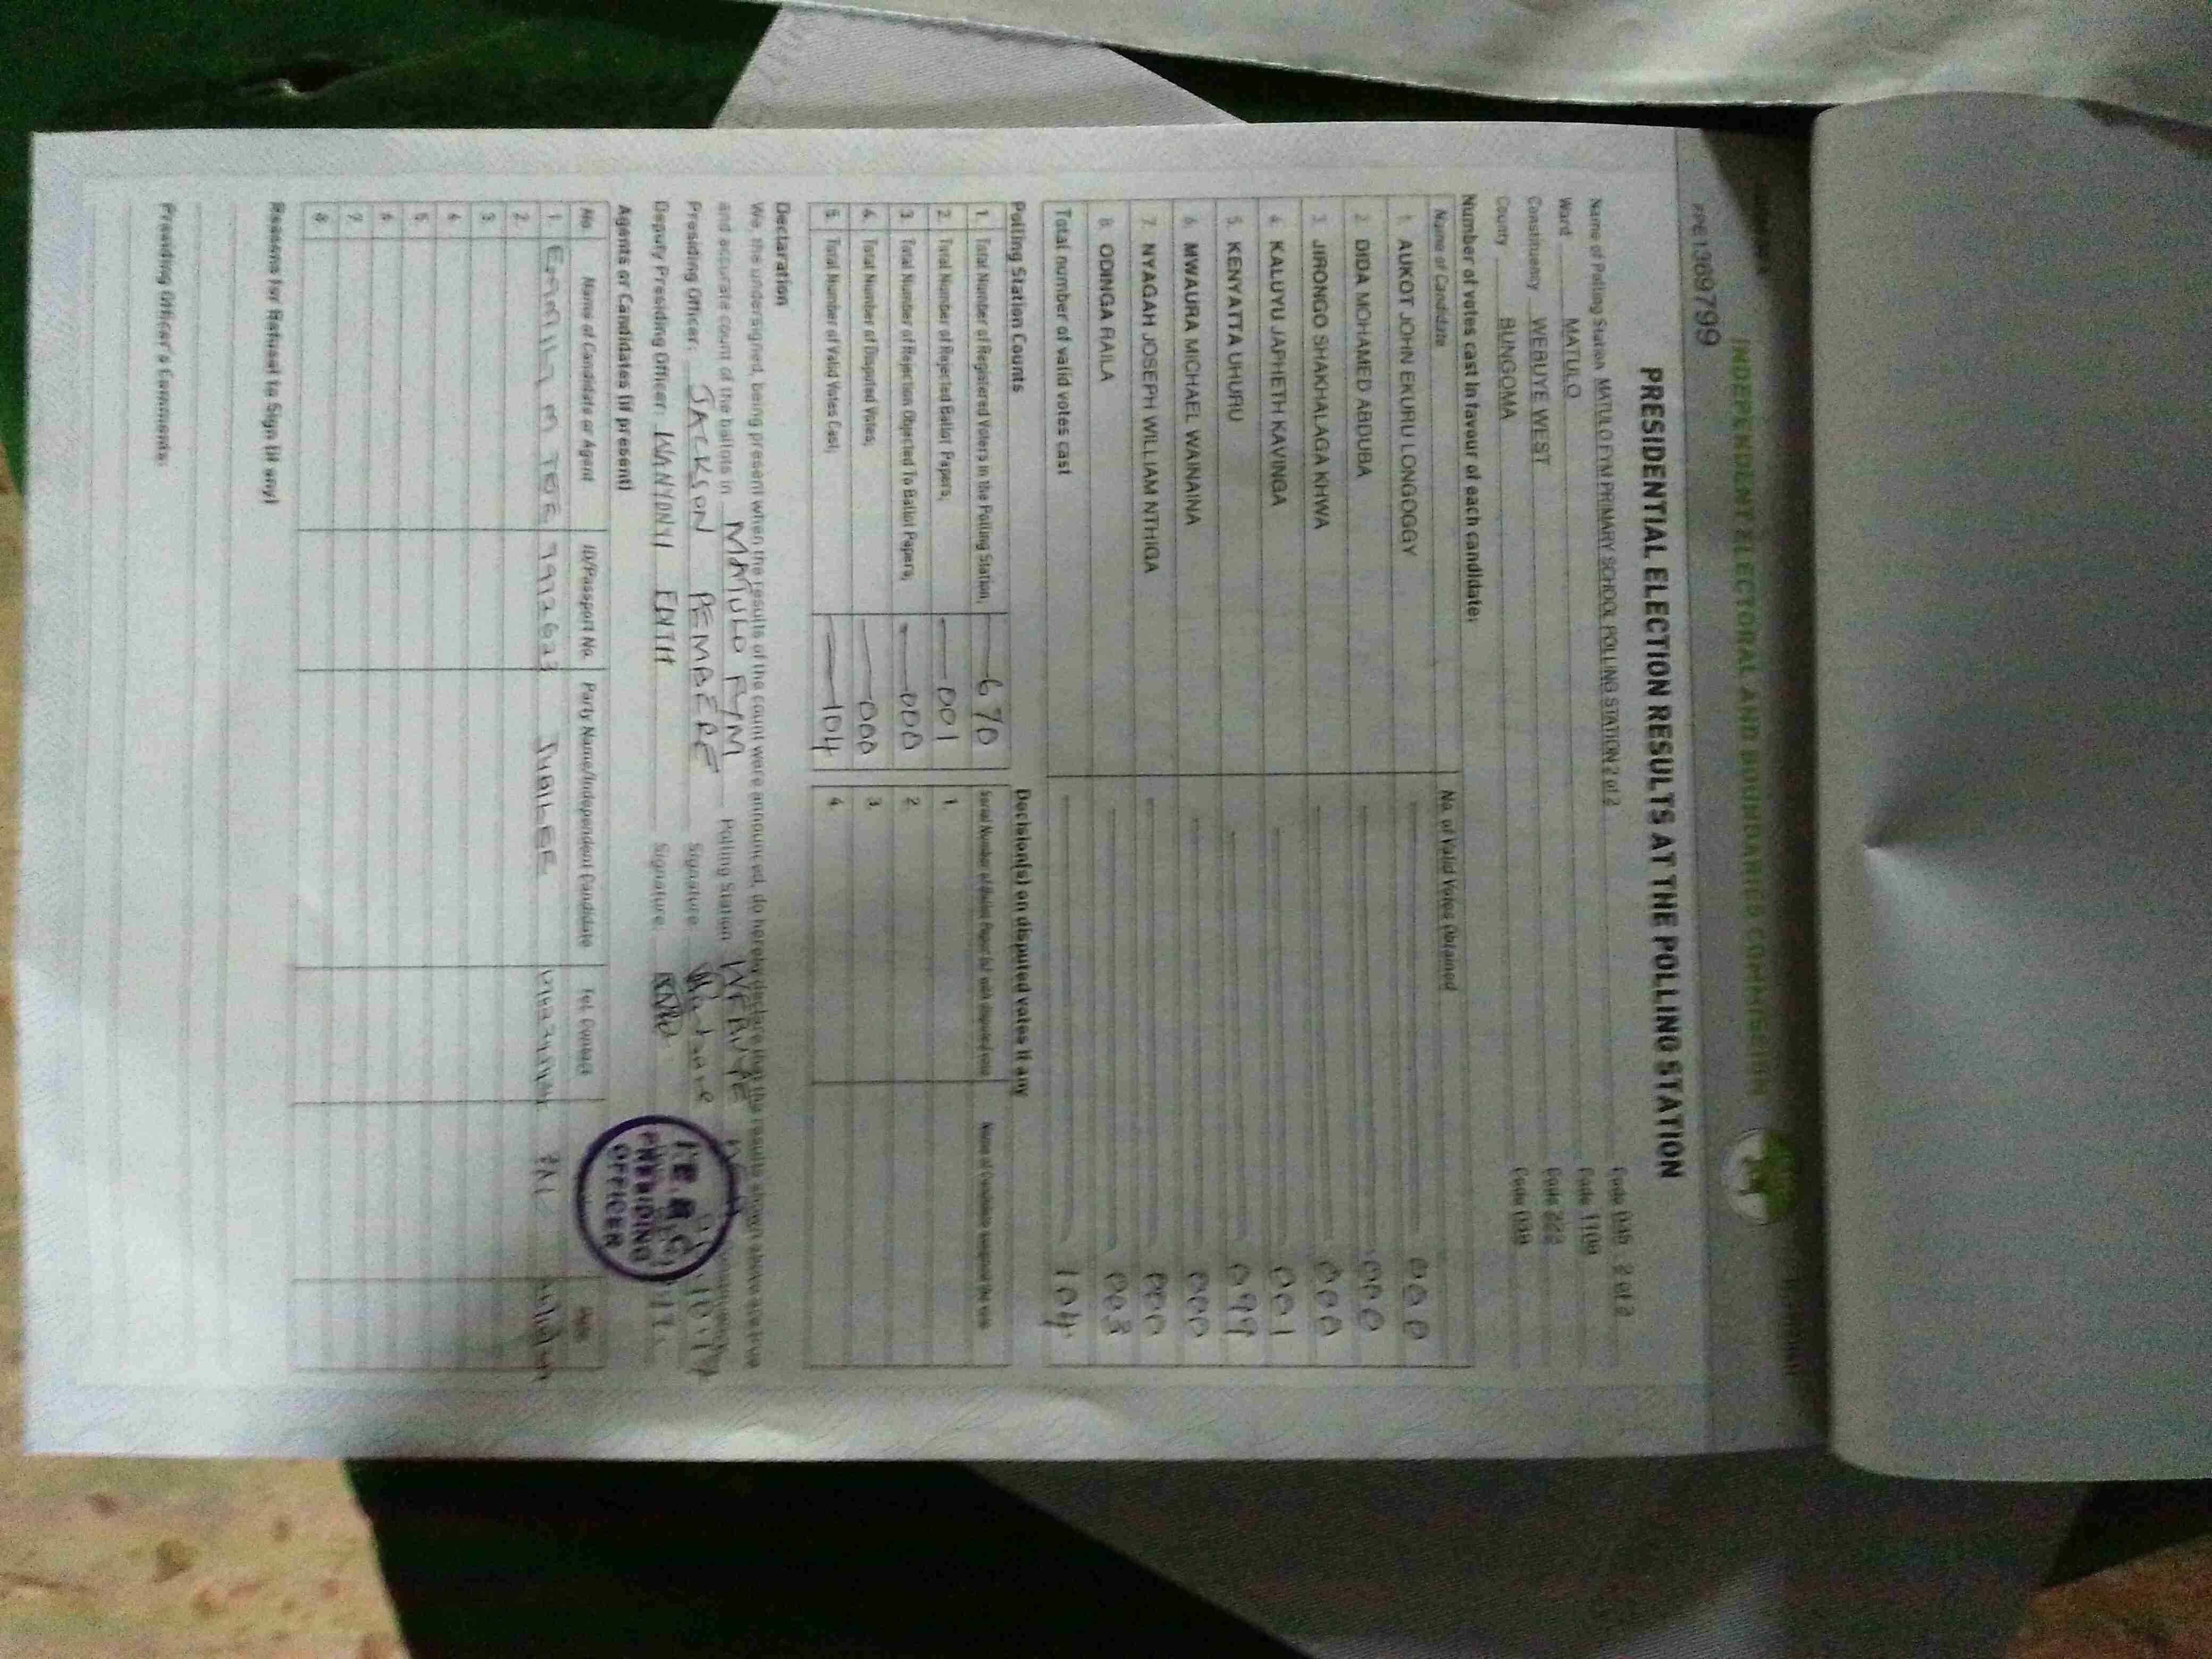 INDEPENDENT ELECTORAL AND BOUNDARIES COMMISSION
PPE1369799
PRESIDENTIAL ELECTION RESULTS AT THE POLLING STATION
Name of Polling Station MATULO FYM PRIMARY SCHOOL POLLING STATION 2 of 2 Code 2 of 2
Ward MATULO Code 1109
Constituency WEBUYE WEST Code 222
County BUNGOMA Code 039
Number of votes cast in favour of each candidate:
Name of Candidate No. of Valid Votes Obtained
1. AUKOT JOHN EKURU LONGOGGY 000
2. DIDA MOHAMED ABDUBA 000
3. JIRONGO SHAKHALAGA KHWA 000
4. KALUYU JAPHETH KAVINGA 001
5. KENYATTA UHURU 099
6. MWAURA MICHAEL WAINAINA 000
7. NYAGAH JOSEPH WILLIAM NTHIGA 000
8. ODINGA RAILA 003
Total number of valid votes cast 104
Polling Station Counts Decision(s) on disputed votes if any
1. Total Number of Registered Voters in the Polling Station; 670
2. Total Number of Rejected Ballot Papers; 001 1.
3. Total Number of Rejection Objected To Ballot Papers; 000 2.
4. Total Number of Disputed Votes; 000 3.
5. Total Number of Valid Votes Cast; 104 4.
Declaration
We, the undersigned, being present when the results of the count were announced, do hereby declare that the results shown above are true
and accurate count of the ballots in MATULO FYM Polling Station WEBUYE
Presiding Officer: JACKSON PEMBERE Signature
Deputy Presiding Officer: WANYONYI EDITH Signature
I.E.B.C
PRESIDING
OFFICER
Agents or Candidates (if present)
No Name of Candidate or Agent ID/Passport No. Party Name/Independent Candidate Tel. Contact Date
1. M JUBILEE
2.
3.
4.
5.
6.
7.
8.
Reasons for Refusal to Sign (if any)
Presiding Officer's Comments: